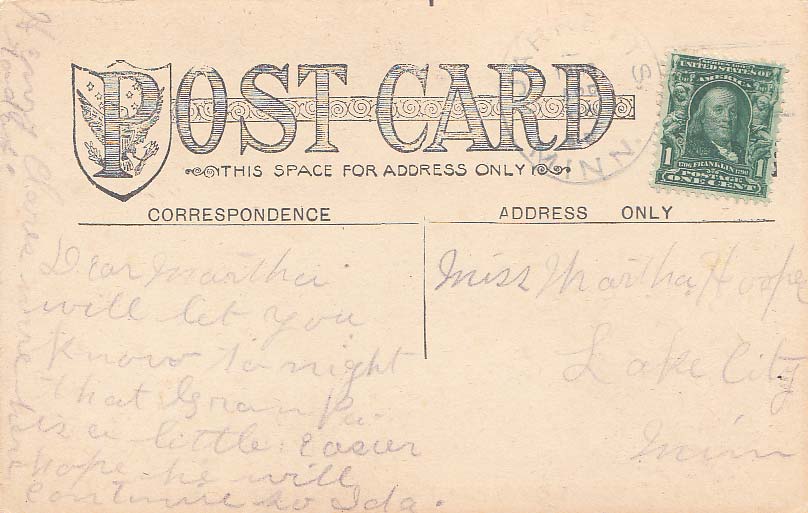 POST CARD
THIS SPACE FOR ADDRESS ONLY
CORRESPONDENCE
ADDRESS ONLY
MINN.
UNITED STATES OF
AMERICA
1 1
FRANKLIN
POSTAGE
ONE CENT
Dear Martha
will let you
know to night
that Gran Pa
is a little easier
hope he will
continue so Ida.
Miss Martha Hoope
Lake City
Minn
Henry